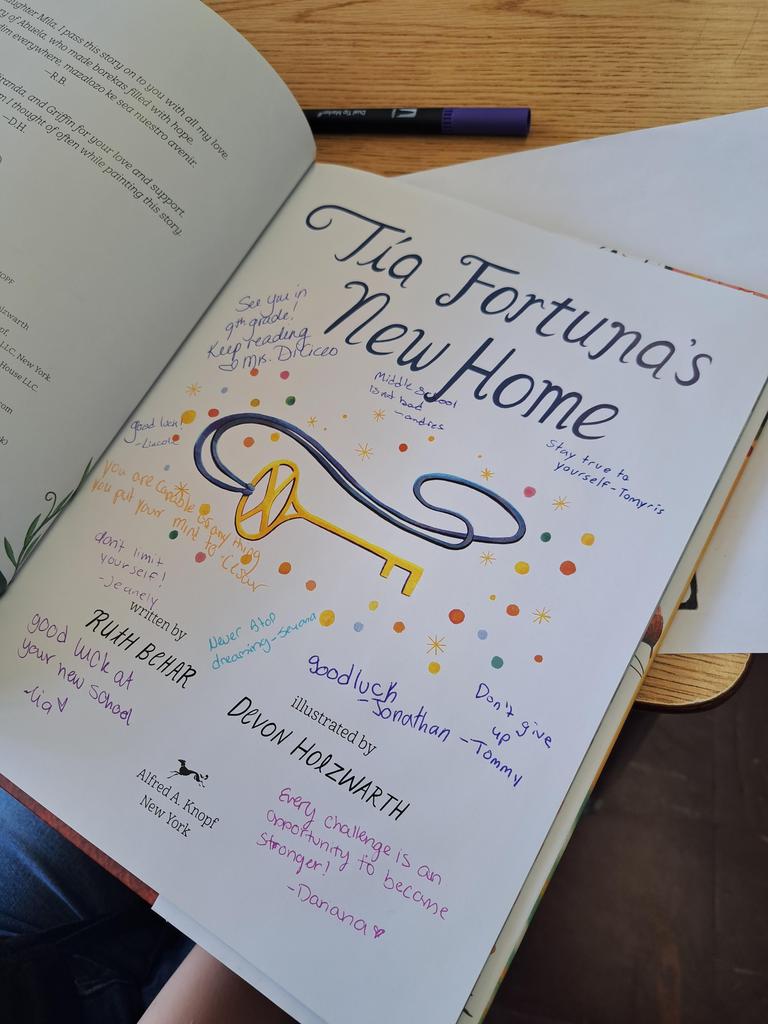 ughter Mila, I pass this story on to you with all my love.
ry of Abuela, who made borekas filled with hope.
dim everywhere, mazalozo ke sea nuestro avenir.
—R.B.
iranda, and Griffin for your love and support.
m I thought of often while painting this story
—D.H.
OPF
olzwarth
pf,
LLC, New York
House LLC.
com
Dual Tip Marker
Tía Fortuna's
New Home
See you in
9th grade!
Keep reading
Mrs. DiCiceo
Middle school
is not bad
-andres
Stay true to
yourself-Tomyris
good luck!
-Lincoln
you are capable of anything
you put your mint to -Cesar
don't limit
yourself!
-Jeanely
written by
RUTH BEHAR
Never stop
dreaming-
good luck at
your new school
-lia
goodluck
-Jonathan
Don't give
up
-Tommy
illustrated by
DEVON HOLZWARTH
Alfred A. Knopf
New York
Every challenge is an
opportunity to become
stronger!
-Danana